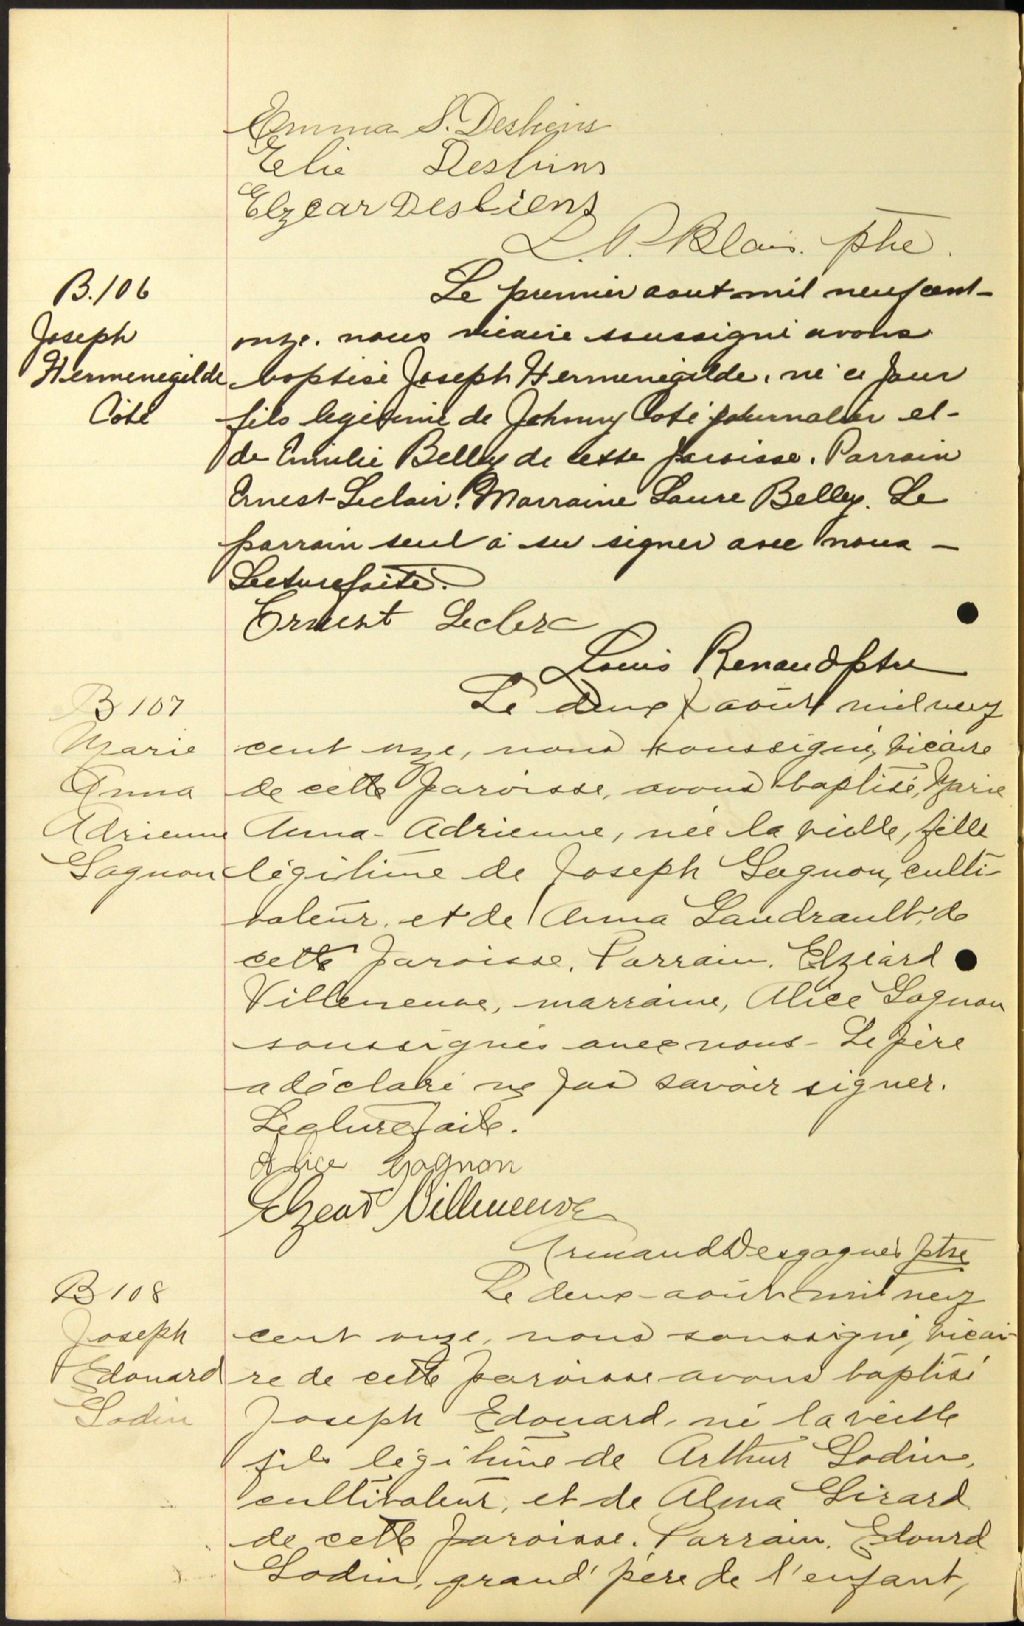 Emma S. Desbiens
Elie Desbiens
Elzear Desbiens
L. P. Blais. ptre.
B.106
Joseph
Hermenegilde
Coté
Le premier aout mil neuf cent-
onze. nous vicaire soussigné avons
baptisé Joseph Hermenégilde, né ce jour
fils légitime de Johnny Coté journalier et-
de Emilie Belley de cette paroisse. Parrain
Ernest Leclair. Marraine Laure Belley. Le
parrain seul a su signer avec nous -
Lecture faite.
Ernest Leclerc
Louis Renaud ptre
B 107
Marie
Anna
Adrienne
Gagnon
Le deux août mil neuf
cent onze, nous soussigné, vicaire
de cette paroisse, avons baptisé, Marie
Anna-Adrienne, née la veille, fille
légitime de Joseph Gagnon, culti-
vateur, et de Anna Gaudrault, de
cette paroisse. Parrain. Elzéard
Villeneuve, marraine, Alice Gagnon
soussignés avec nous - Le père
a déclaré ne pas savoir signer.
Lecture faite.
Alice Gagnon
Elzear Villeneuve
Armand Desgagnés ptre
B 108
Joseph
Edouard
Godin
Le deux août mil neuf
cent onze, nous soussigné, vicai-
re de cette paroisse avons baptisé
Joseph Edouard, né la veille
fils légitime de Arthur Godin,
cultivateur, et de Alma Girard
de cette paroisse. Parrain. Edourd
Godin, grand'père de l'enfant,